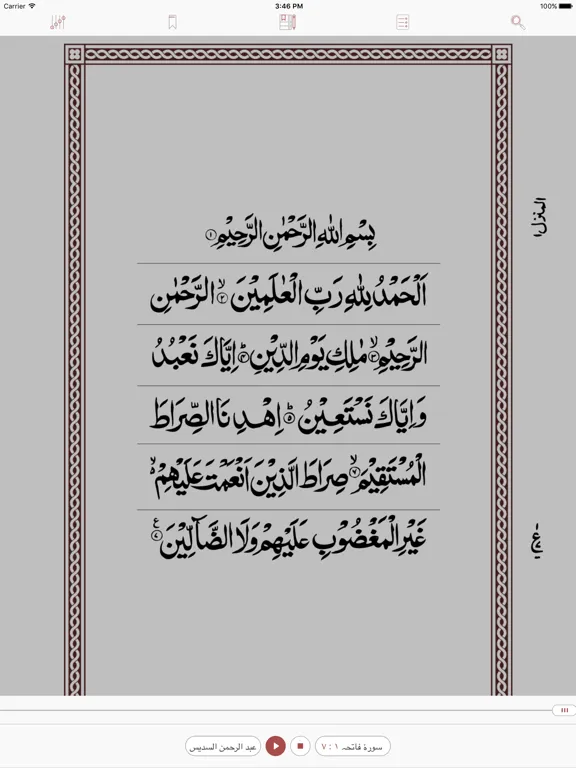 Carrier 3:46 PM 100%
المنزل ۱
بِسْمِ اللهِ الرَّحْمٰنِ الرَّحِيْمِ ۱
اَلْحَمْدُ لِلّٰهِ رَبِّ الْعٰلَمِيْنَ ۙ ۲ الرَّحْمٰنِ
الرَّحِيْمِ ۙ ۳ مٰلِكِ يَوْمِ الدِّيْنِ ؕ ۴ اِيَّاكَ نَعْبُدُ
وَاِيَّاكَ نَسْتَعِيْنُ ؕ ۵ اِهْدِنَا الصِّرَاطَ
الْمُسْتَقِيْمَ ۙ صِرَاطَ الَّذِيْنَ اَنْعَمْتَ عَلَيْهِمْ
غَيْرِ الْمَغْضُوْبِ عَلَيْهِمْ وَلَا الضَّآلِّيْنَ
عبد الرحمن السديس
سورۃ فاتحہ ۱ : ۷